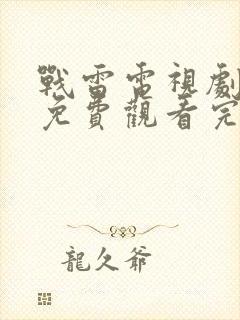 戰雷電視劇
免費觀看完
龍久爺